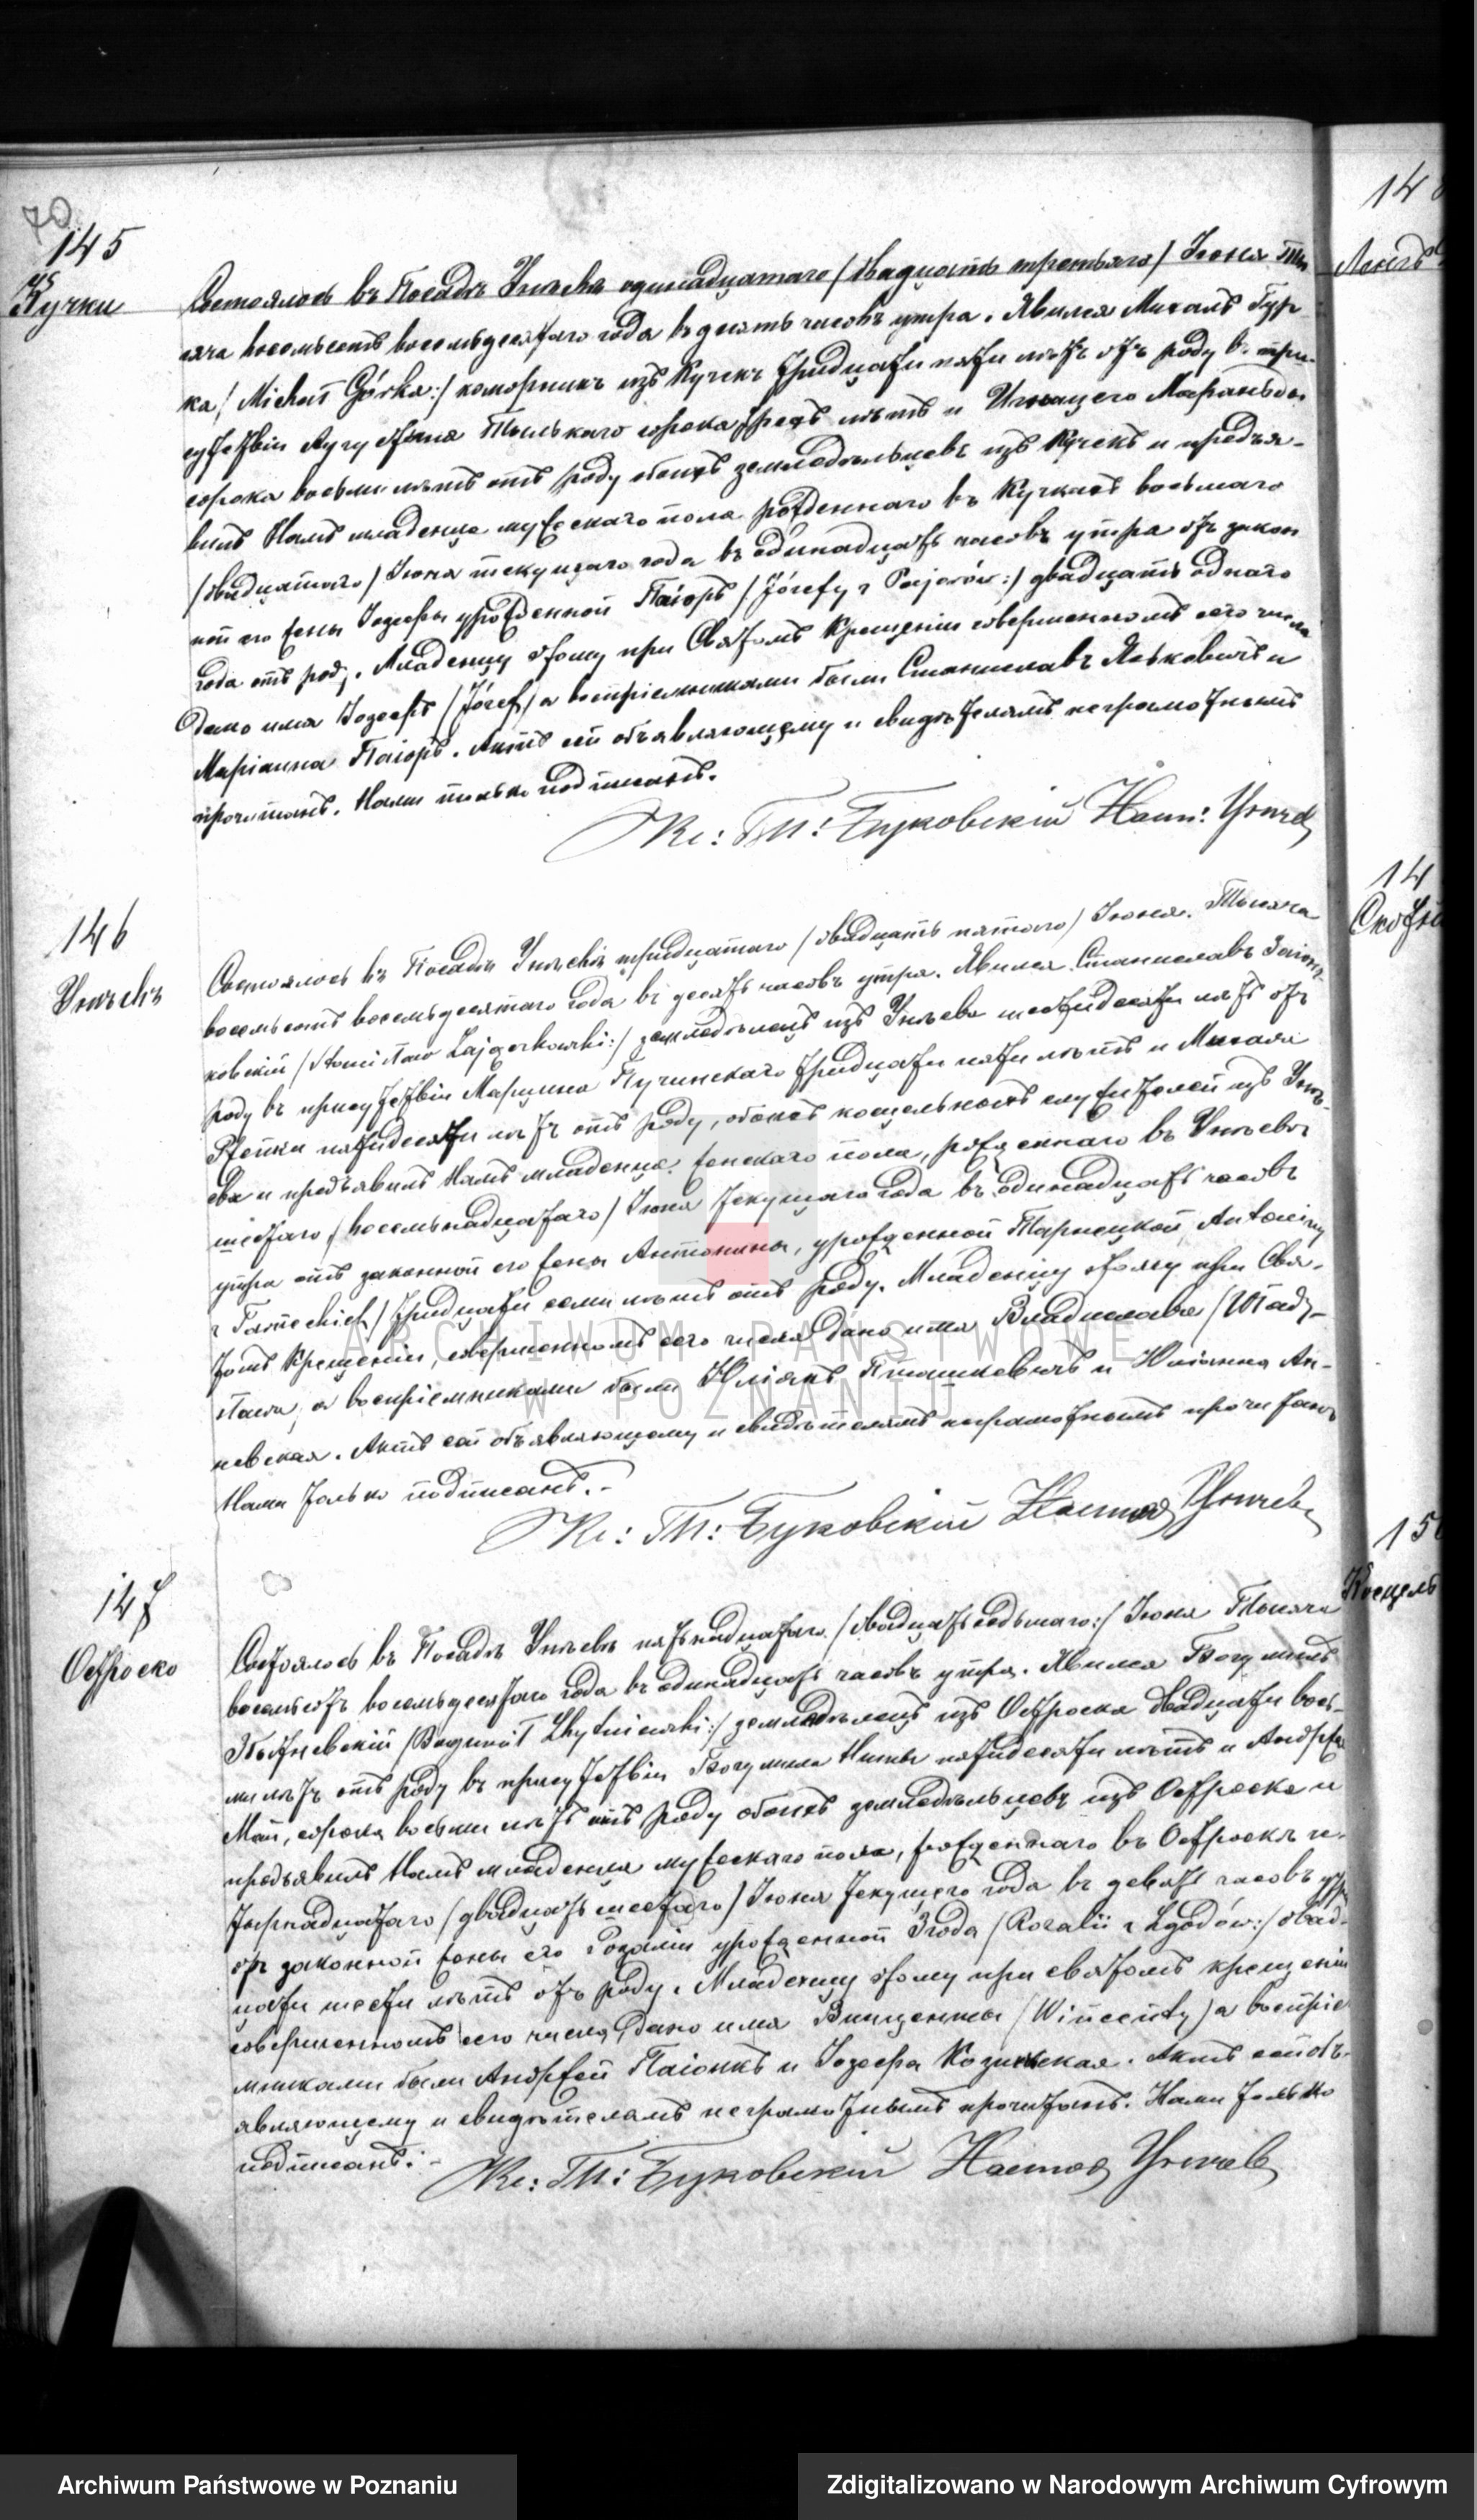 70
145
Кучки
Состоялось въ Посадѣ Унѣевѣ одинадцатаго / двадцать третьяго / Іюня Ты-
сяча восемьсотъ восемьдесятаго года въ десять часовъ утра. Явился Михалъ Гур-
ка / Michał Górka:/ коморникъ изъ Кучекъ тридцати пяти лѣтъ отъ роду въ при-
сутствіи Августина сорока трехъ лѣтъ и Игнацего
сорока восьми лѣтъ отъ роду обоихъ земледѣльцевъ изъ Кучекъ и предъя-
вилъ Намъ младенца мужескаго пола рожденнаго въ Кучкахъ восьмаго
/ двадцатаго / Іюня текущаго года въ одинадцать часовъ утра отъ закон
ной его жены Іозефы урожденной Паіоръ / Józefy z Pajorów:/ двадцать одного
года отъ роду. Младенцу этому при Святомъ Крещеніи совершенномъ сего числа
дано имя Іозефъ / Józef / а воспріемниками были Станиславъ Яськовичъ и
Маріанна Паіоръ. Актъ сей объявляющему и свидѣтелямъ неграмотнымъ
прочитанъ. Нами только подписанъ.
Кс: Буковскій Наст: Унѣев
146
Унѣевъ
Состоялось въ Посадѣ Унѣевѣ тридцатаго / двадцать пятаго / Іюня. Тысяча
восемьсотъ восемьдесятаго года въ десять часовъ утра. Явился Станиславъ Заіонч-
ковскій / Stanisław Zajączkowski:/ земледѣлецъ изъ Унѣева шестидесяти лѣтъ отъ
роду въ присутствіи Марцина Пучинскаго тридцати пяти лѣтъ и Михала
Ржепки пятидесяти лѣтъ отъ роду, обоихъ костельныхъ служителей изъ Унѣ-
ева и предъявилъ Намъ младенца женскаго пола, рожденнаго въ Унѣевѣ
шестаго / восемьнадцатаго / Іюня текущаго года въ одинадцать часовъ
утра отъ законной его жены Антонины, урожденной Тарнецкой Antoniny
z Tarneckich / тридцати семи лѣтъ отъ роду. Младенцу этому при Свя-
томъ Крещеніи, совершенномъ сего числа дано имя Владислава / Włady-
sława, а воспріемниками были Юліанъ Пташкевичъ и Юліанна Ан-
невская. Актъ сей объявляющему и свидѣтелямъ неграмотнымъ прочитанъ
Нами только подписанъ.-
Кс: Буковскій Настоя Унѣев
147
Остроско
Состоялось въ Посадѣ Унѣевѣ пятьнадцатаго / двадцать седьмаго:/ Іюня Тысяча
восемьсотъ восемьдесятаго года въ одинадцать часовъ утра. Явился Богумилъ
Збытневскій / Bogumił Zbytniewski:/ земледѣлецъ изъ Остроска двадцати вось-
ми лѣтъ отъ роду въ присутствіи Богумила пятидесяти лѣтъ и Андржея
Май, сорока восьми лѣтъ отъ роду обоихъ земледѣльцевъ изъ Остроска и
предъявилъ Намъ младенца мужескаго пола, рожденнаго въ Остроскѣ че-
тырнадцатаго / двадцать шестаго / Іюня текущаго года въ девять часовъ утра
отъ законной жены его Розаліи урожденной Згода / Rozalii z Zgodów:/ двад-
цати шести лѣтъ отъ роду. Младенцу этому при святомъ крещеніи
совершенномъ сего числа, дано имя Винценты / Wincenty / а воспріе
мниками были Андржей Паіонкъ и Іозефа Козинская. Актъ сей объ-
являющему и свидѣтелямъ неграмотнымъ прочитанъ. Нами только
подписанъ:-
Кс: Буковскій Настоя Унѣев
14
14
15
Archiwum Państwowe w Poznaniu
ARCHIWUM PAŃSTWOWE
W POZNANIU
Zdigitalizowano w Narodowym Archiwum Cyfrowym